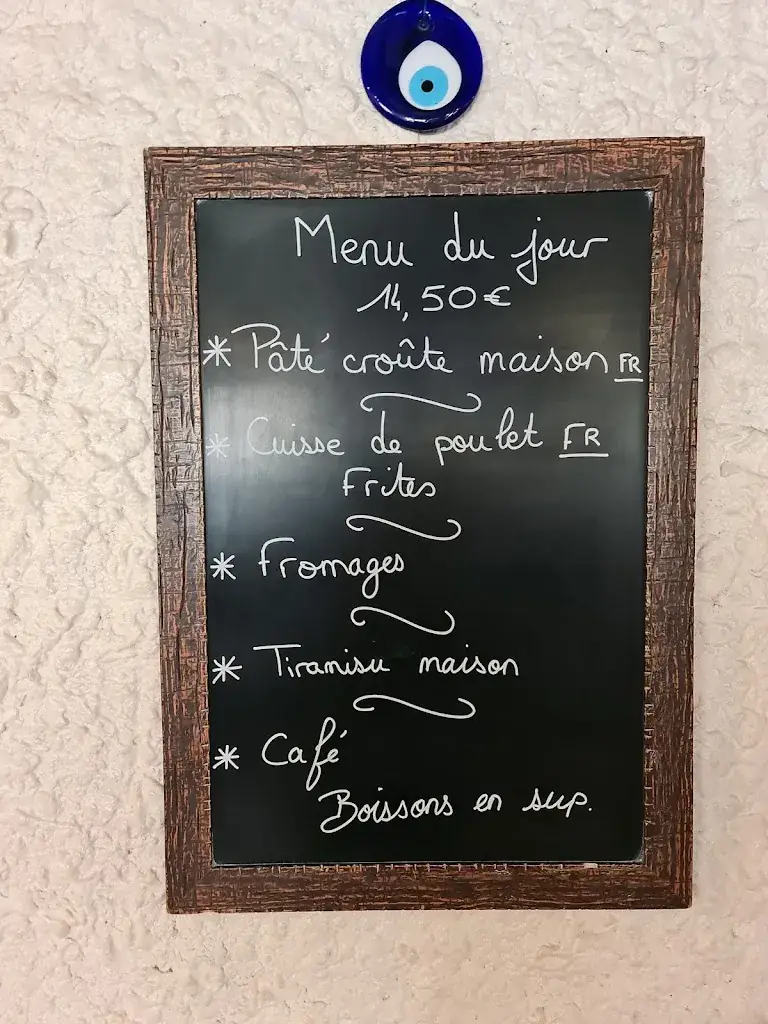 Menu du jour
14,50€
* Pâté croûte maison FR
* Cuisse de poulet FR
Frites
* Fromages
* Tiramisu maison
* Café
Boissons en sup.